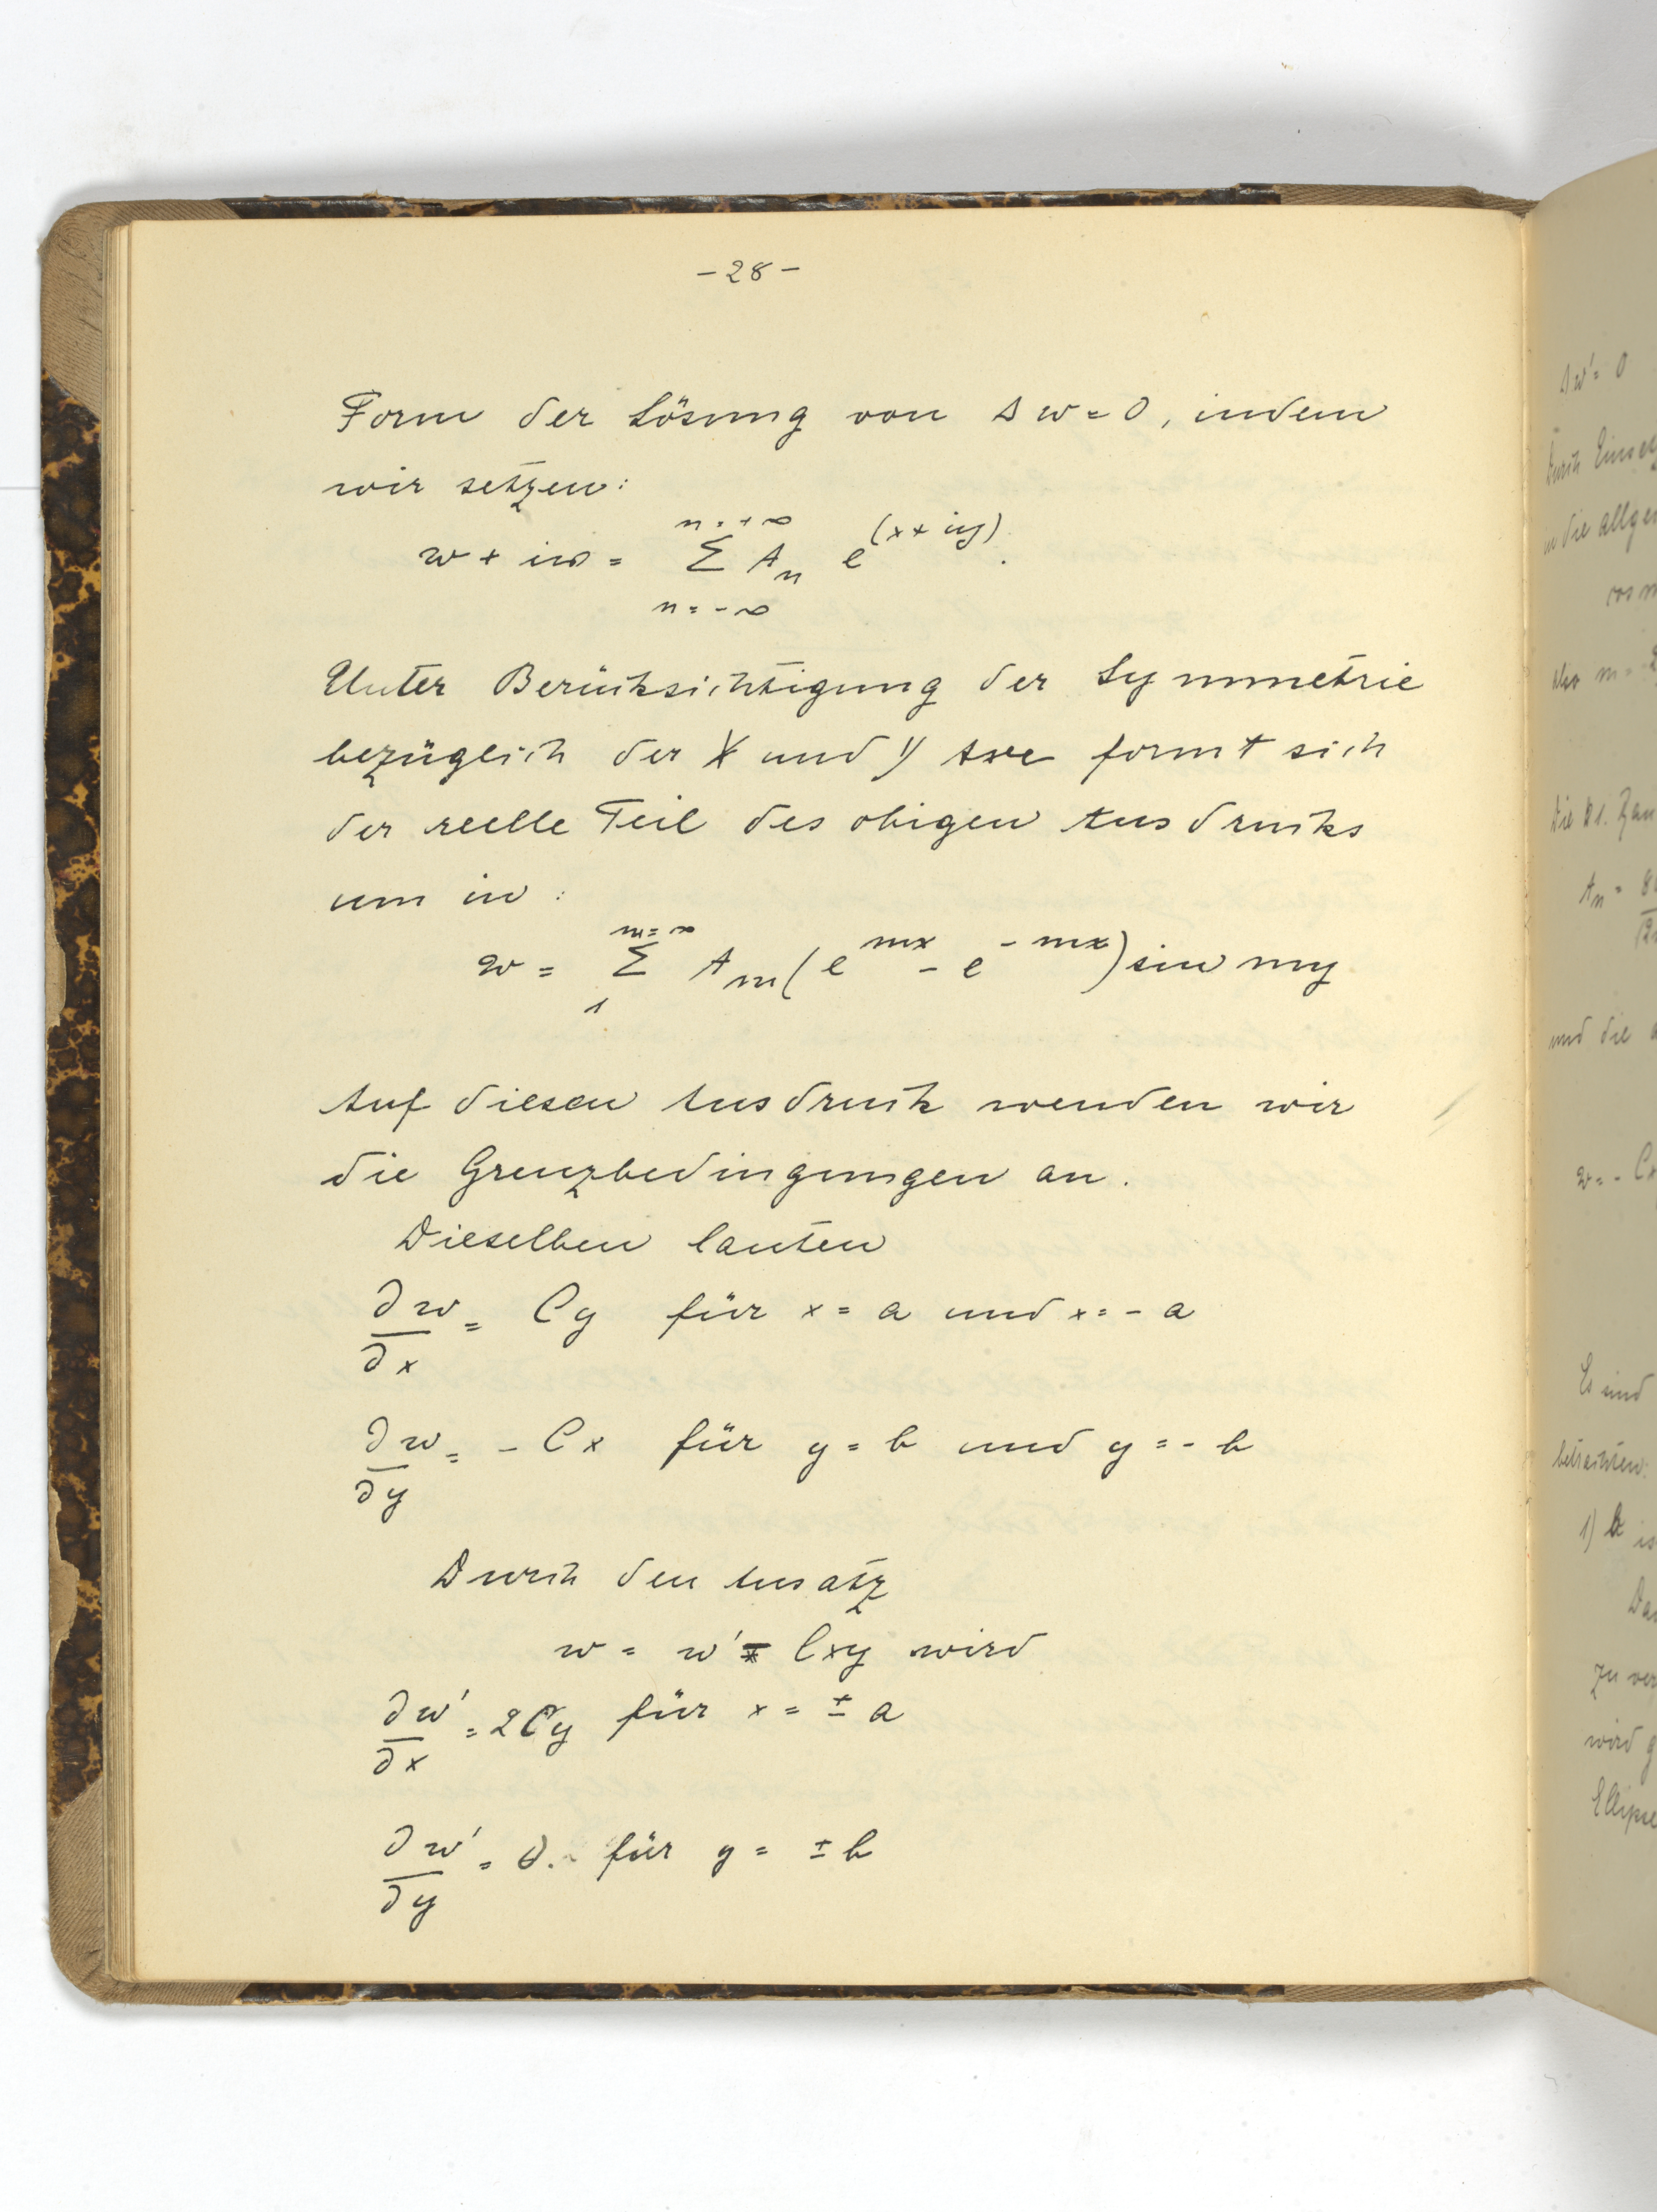 -28-
Form der Lösung von Δw=0, indem
wir setzen:
n=+∞
w + iω = Σ A_n e^(x+iy).
n=-∞
Unter Berücksichtigung der Symmetrie
bezüglich der X und Y Axe formt sich
der reelle Teil des obigen Ausdrucks
um in:
m=∞
w = Σ A_m (e^mx - e^-mx) sin my
1
Auf diesen Ausdruck wenden wir
die Grenzbedingungen an.
Dieselben lauten
∂w/∂x = Cy für x = a und x = -a
∂w/∂y = -Cx für y = b und y = -b
Durch den Ansatz
w = w' - Cxy wird
∂w'/∂x = 2Cy für x = ± a
∂w'/∂y = 0. für y = ± b
Δw' = 0
Durch
in die
cos
also m =
Die
A_n =
und die
w = - Cx
Es sind
betrachten:
1) b
zu
wird
Ellipse